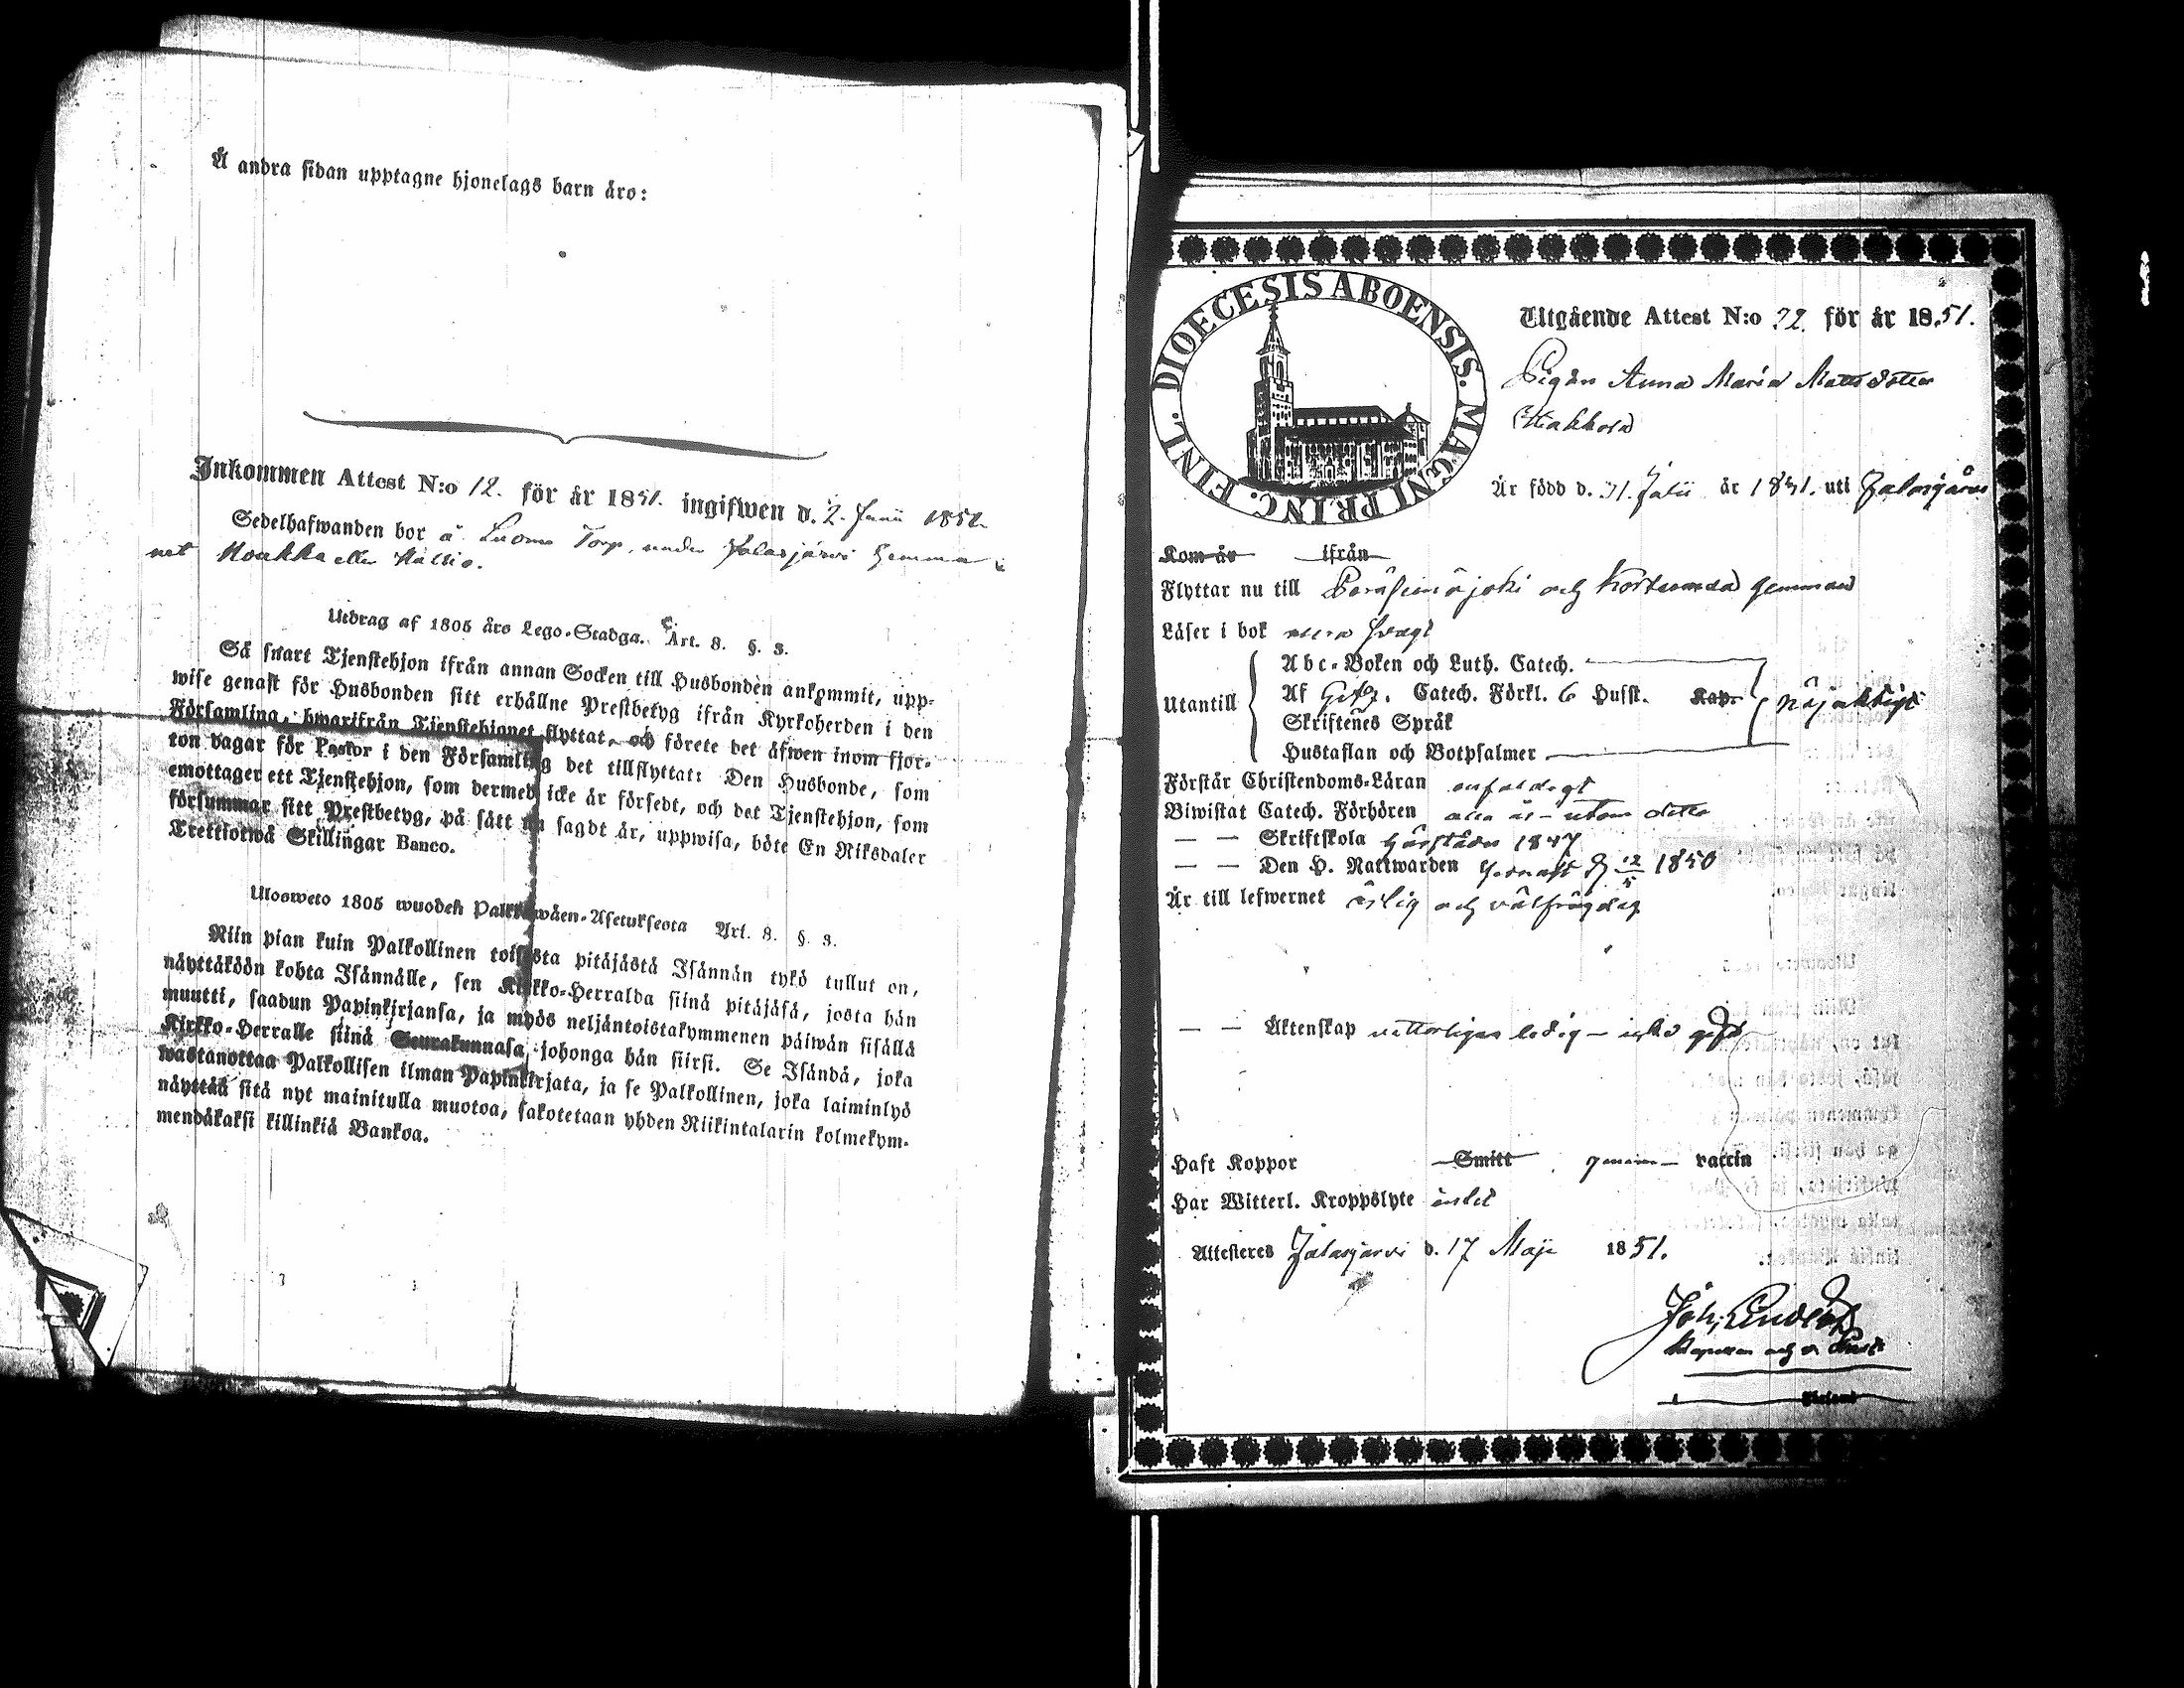 Å andra sidan upptagne hjonelags barn äro:
Inkommen Attest N:o 12. för år 1851. ingifwen d. 2. Junii 1851.
Sedelhafwanden bor å Luoma Torp, under Jalasjärvi hemma
net eller
Utdrag af 1805 års Lego-Stadga. Art. 8. §. 3.
Så snart Tjenstehjon ifrån annan Socken till Husbonden ankommit, upp-
wise genast för Husbonden sitt erhållne Prestbetyg ifrån Kyrkoherden i den
Församling, hwarifrån Tjenstehjonet flyttat, och förete det äfwen inom fjor-
ton dagar för Pastor i den Församling det tillflyttat: Den Husbonde, som
emottager ett Tjenstehjon, som dermed icke är försedt, och det Tjenstehjon, som
försummar sitt Prestbetyg, på sätt nu sagdt är, uppwisa, böte En Riksdaler
Trettiotwå Skillingar Banco.
Ulosweto 1805 wuoden Palkkawäen-Asetuksesta Art. 8. §. 3.
Niin pian kuin Palkollinen toisesta pitäjästä Isännän tykö tullut on,
näyttäköön kohta Isännälle, sen Kirkko-Herralda siinä pitäjäsä, josta hän
muutti, saadun Papinkirjansa, ja myös neljäntoistakymmenen päiwän sisällä
Kirkko-Herralle siinä Seurakunnasa, johonga hän siirsi. Se Isändä, joka
wastanottaa Palkollisen ilman Papinkirjata, ja se Palkollinen, joka laiminlyö
näyttää sitä nyt mainitulla muotoa, sakotetaan yhden Riikintalarin kolmekym-
mendäkaksi killinkiä Bankoa.
DIOECESIS ABOENSIS. MAGNI PRINC. FINL.
Utgående Attest N:o 22. för år 1851.
Pigan Anna Maria Mattsdotter
Är född d. 31. Julii år 1831. uti Jalasjärvi
Kom år ifrån
Flyttar nu till Peräseinäjoki och hemman
Läser i bok svagt
Abc-Boken och Luth. Catech.
Utantill Af Catech. Förkl. 6 Husst. Kap. nöjaktigt
Skriftenes Språk
Hustaflan och Botpsalmer
Förstår Christendoms-Läran enfaldigt
Biwistat Catech. Förhören alla år utom detta
— — Skriftskola härstädes 1847
— — Den H. Nattwarden senast d 12/5 1850
Är till lefwernet ärlig och välfrägdad
— — Äktenskap vitterligen ledig – icke gift
Haft Koppor Smitt genom vaccin
Har Witterl. Kroppslyte intet
Attesteras Jalasjärvi d. 17 Maji 1851.
Joh. Lindstedt
Kapellan och v.